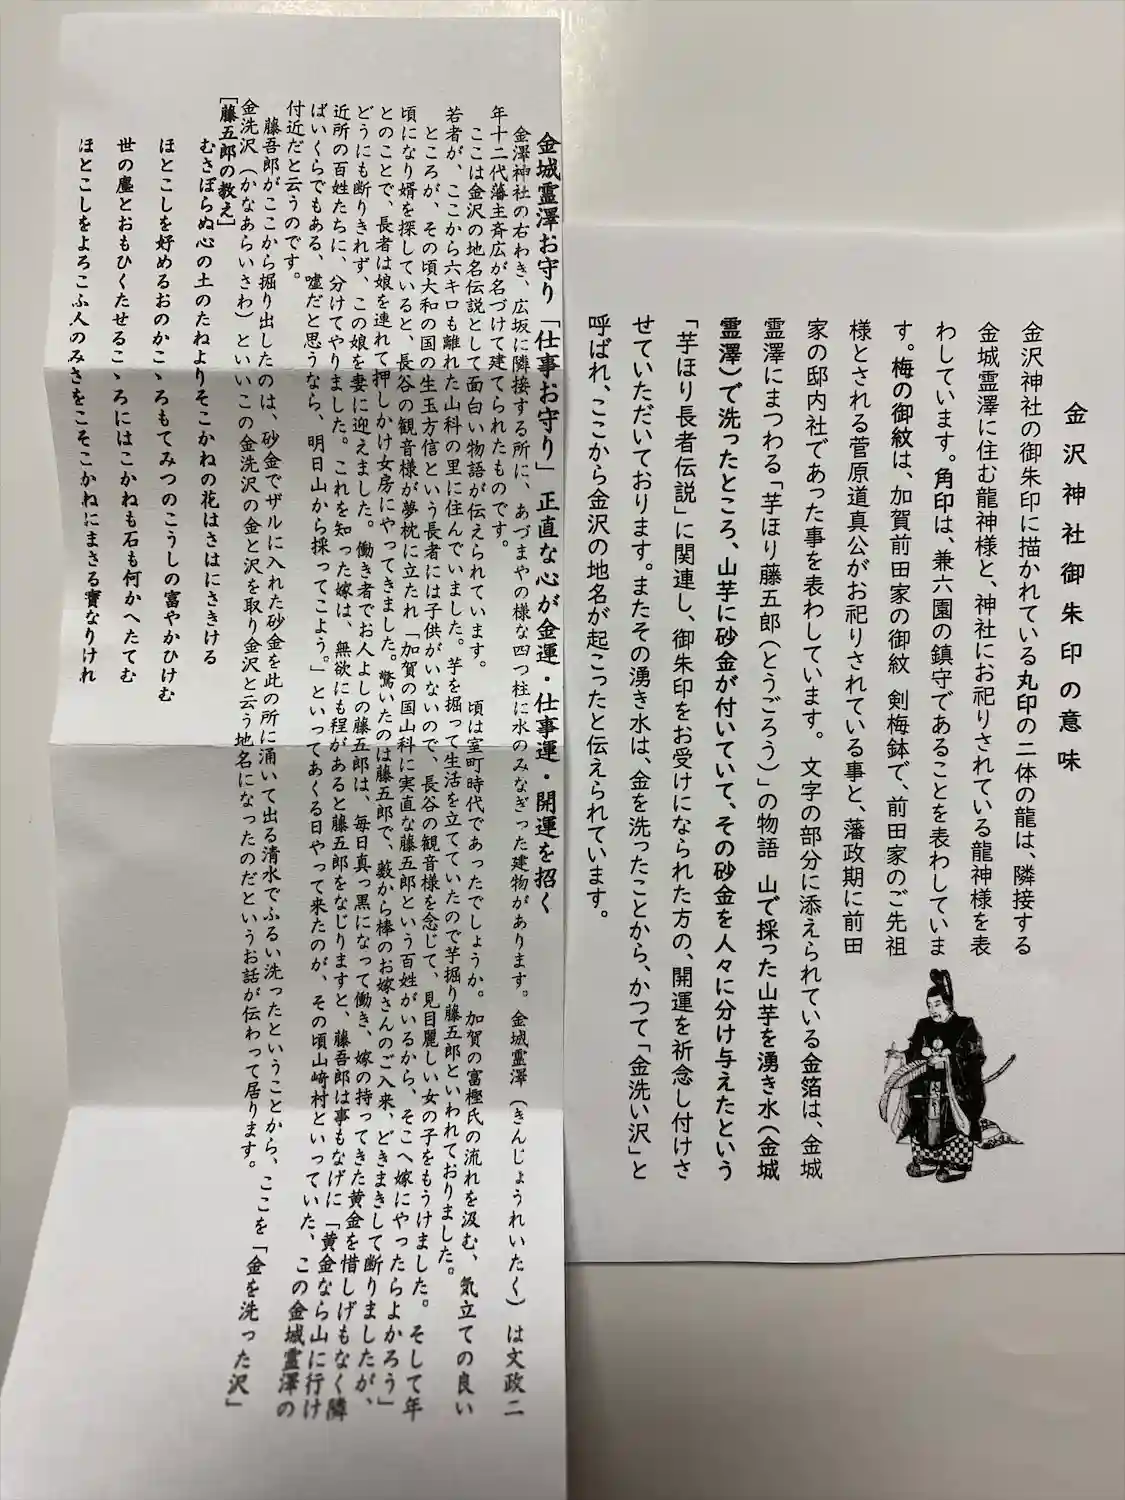 金沢神社御朱印の意味
金沢神社の御朱印に描かれている丸印の二体の龍は、隣接する
金城霊澤に住む龍神様と、神社にお祀りされている龍神様を表
わしています。角印は、兼六園の鎮守であることを表わしていま
す。梅の御紋は、加賀前田家の御紋　剣梅鉢で、前田家のご先祖
様とされる菅原道真公がお祀りされている事と、藩政期に前田
家の邸内社であった事を表わしています。　文字の部分に添えられている金箔は、金城
霊澤にまつわる「芋ほり藤五郎（とうごろう）」の物語　山で採った山芋を湧き水（金城
霊澤）で洗ったところ、山芋に砂金が付いていて、その砂金を人々に分け与えたという
「芋ほり長者伝説」に関連し、御朱印をお受けになられた方の、開運を祈念し付けさ
せていただいております。またその湧き水は、金を洗ったことから、かつて「金洗い沢」と
呼ばれ、ここから金沢の地名が起こったと伝えられています。
金城霊澤お守り「仕事お守り」正直な心が金運・仕事運・開運を招く
金澤神社の右わき、広坂に隣接する所に、あづまやの様な四つ柱に水のみなぎった建物があります。金城霊澤（きんじょうれいたく）は文政二
年十二代藩主斉広が名づけて建てられたものです。
ここは金沢の地名伝説として面白い物語が伝えられています。　頃は室町時代であったでしょうか。加賀の富樫氏の流れを汲む、気立ての良い
若者が、ここから六キロも離れた山科の里に住んでいました。芋を掘って生活を立てていたので芋掘り藤五郎といわれておりました。
ところが、その頃大和の国の生玉方信という長者には子供がいないので、長谷の観音様を念じて、見目麗しい女の子をもうけました。そして年
頃になり婿を探していると、長谷の観音様が夢枕に立たれ「加賀の国山科に実直な藤五郎という百姓がいるから、そこへ嫁にやったらよかろう」
とのことで、長者は娘を連れて押しかけ女房にやってきました。驚いたのは藤五郎で、藪から棒のお嫁さんのご入来、どきまきして断りましたが、
どうにも断りきれず、この娘を妻に迎えました。働き者でお人よしの藤五郎は、毎日真っ黒になって働き、嫁の持ってきた黄金を惜しげもなく隣
近所の百姓たちに、分けてやりました。これを知った嫁は、無欲にも程があると藤五郎をなじりますと、藤吾郎は事もなげに「黄金なら山に行け
ばいくらでもある、嘘だと思うなら、明日山から採ってこよう。」といってあくる日やって来たのが、その頃山崎村といっていた、この金城霊澤の
付近だと云うのです。
藤吾郎がここから掘り出したのは、砂金でザルに入れた砂金を此の所に涌いて出る清水でふるい洗ったということから、ここを「金を洗った沢」
金洗沢（かなあらいさわ）といいこの金洗沢の金と沢を取り金沢と云う地名になったのだというお話が伝わって居ります。
［藤五郎の教え］
むさぼらぬ心の土のたねよりそこかねの花はさはにさきける
ほとこしを好めるおのかこゝろもてみつのこうしの富やかひけむ
世の塵とおもひくたせるこゝろにはこかねも石も何かへたてむ
ほとこしをよろこふ人のみさをこそこかねにまさる寳なりけれ